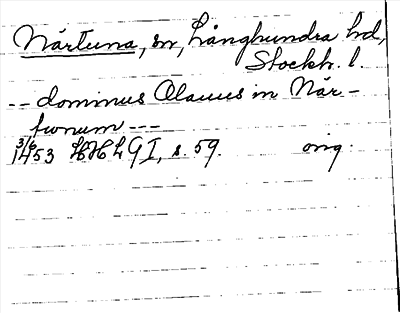 Närtuna, sn, Långhundra hd,
Stockh. l.
-- dominus Olauus in När-
tunum ---
3/6
1453 HHLG I, s. 59. orig.